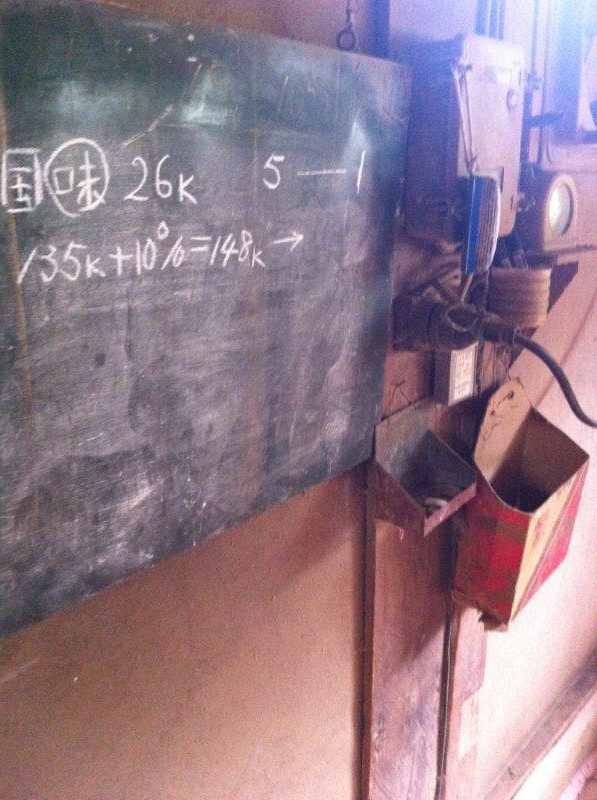 国 味 26K 5 — 1
135K+10%=148K →